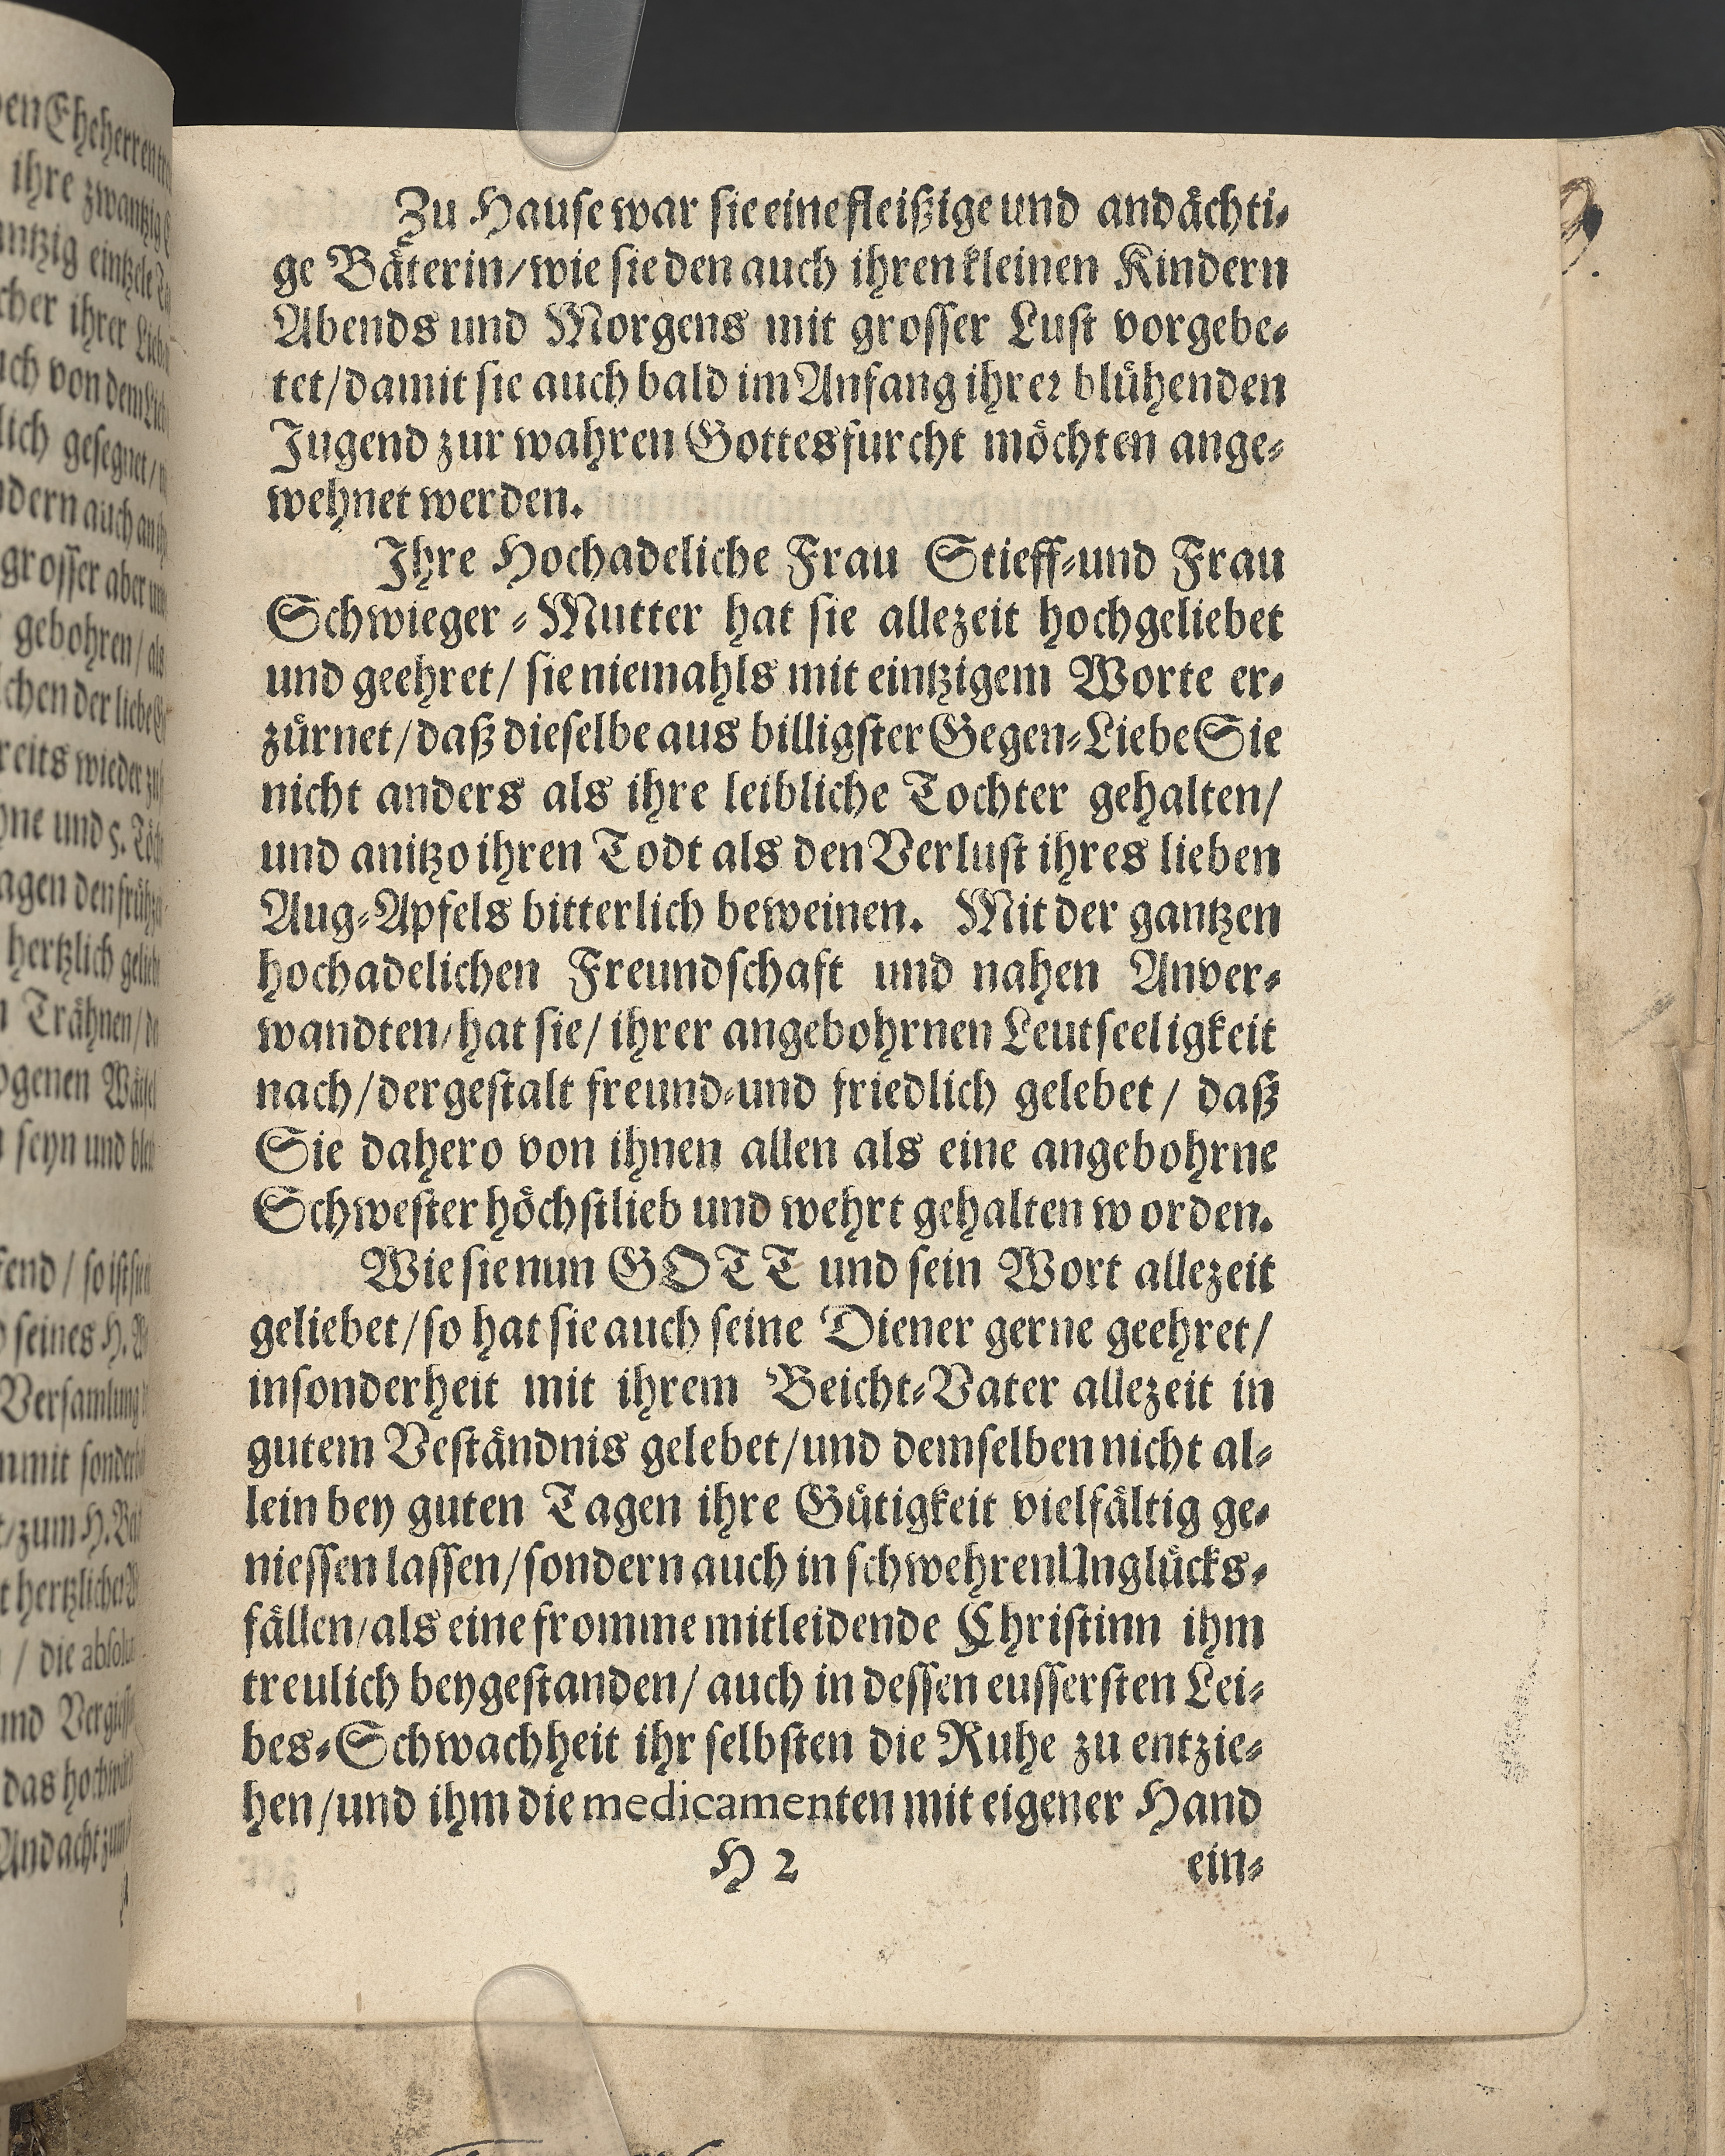 Zu Hause war sie eine fleißige und andächti-
ge Bäterin/ wie sie den auch ihren kleinen Kindern
Abends und Morgens mit grosser Lust vorgebe-
tet/ damit sie auch bald im Anfang ihrer blühenden
Jugend zur wahren Gottesfurcht möchten ange-
wehnet werden.
Ihre Hochadeliche Frau Stieff-und Frau
Schwieger-Mutter hat sie allezeit hochgeliebet
und geehret/ sie niemahls mit eintzigem Worte er-
zürnet/ daß dieselbe aus billigster Gegen-Liebe Sie
nicht anders als ihre leibliche Tochter gehalten/
und anitzo ihren Todt als den Verlust ihres lieben
Aug-Apfels bitterlich beweinen. Mit der gantzen
hochadelichen Freundschaft und nahen Anver-
wandten/ hat sie/ ihrer angebohrnen Leutseeligkeit
nach/ dergestalt freund-und friedlich gelebet/ daß
Sie dahero von ihnen allen als eine angebohrne
Schwester höchstlieb und wehrt gehalten worden.
Wie sie nun GOTT und sein Wort allezeit
geliebet/ so hat sie auch seine Diener gerne geehret/
insonderheit mit ihrem Beicht-Vater allezeit in
gutem Veständnis gelebet/ und demselben nicht al-
lein bey guten Tagen ihre Gütigkeit vielfältig ge-
niessen lassen/ sondern auch in schwehren Unglücks-
fällen/ als eine fromme mitleidende Christinn ihm
treulich beygestanden/ auch in dessen eussersten Lei-
bes-Schwachheit ihr selbsten die Ruhe zu entzie-
hen/ und ihm die medicamenten mit eigener Hand
H 2 ein-